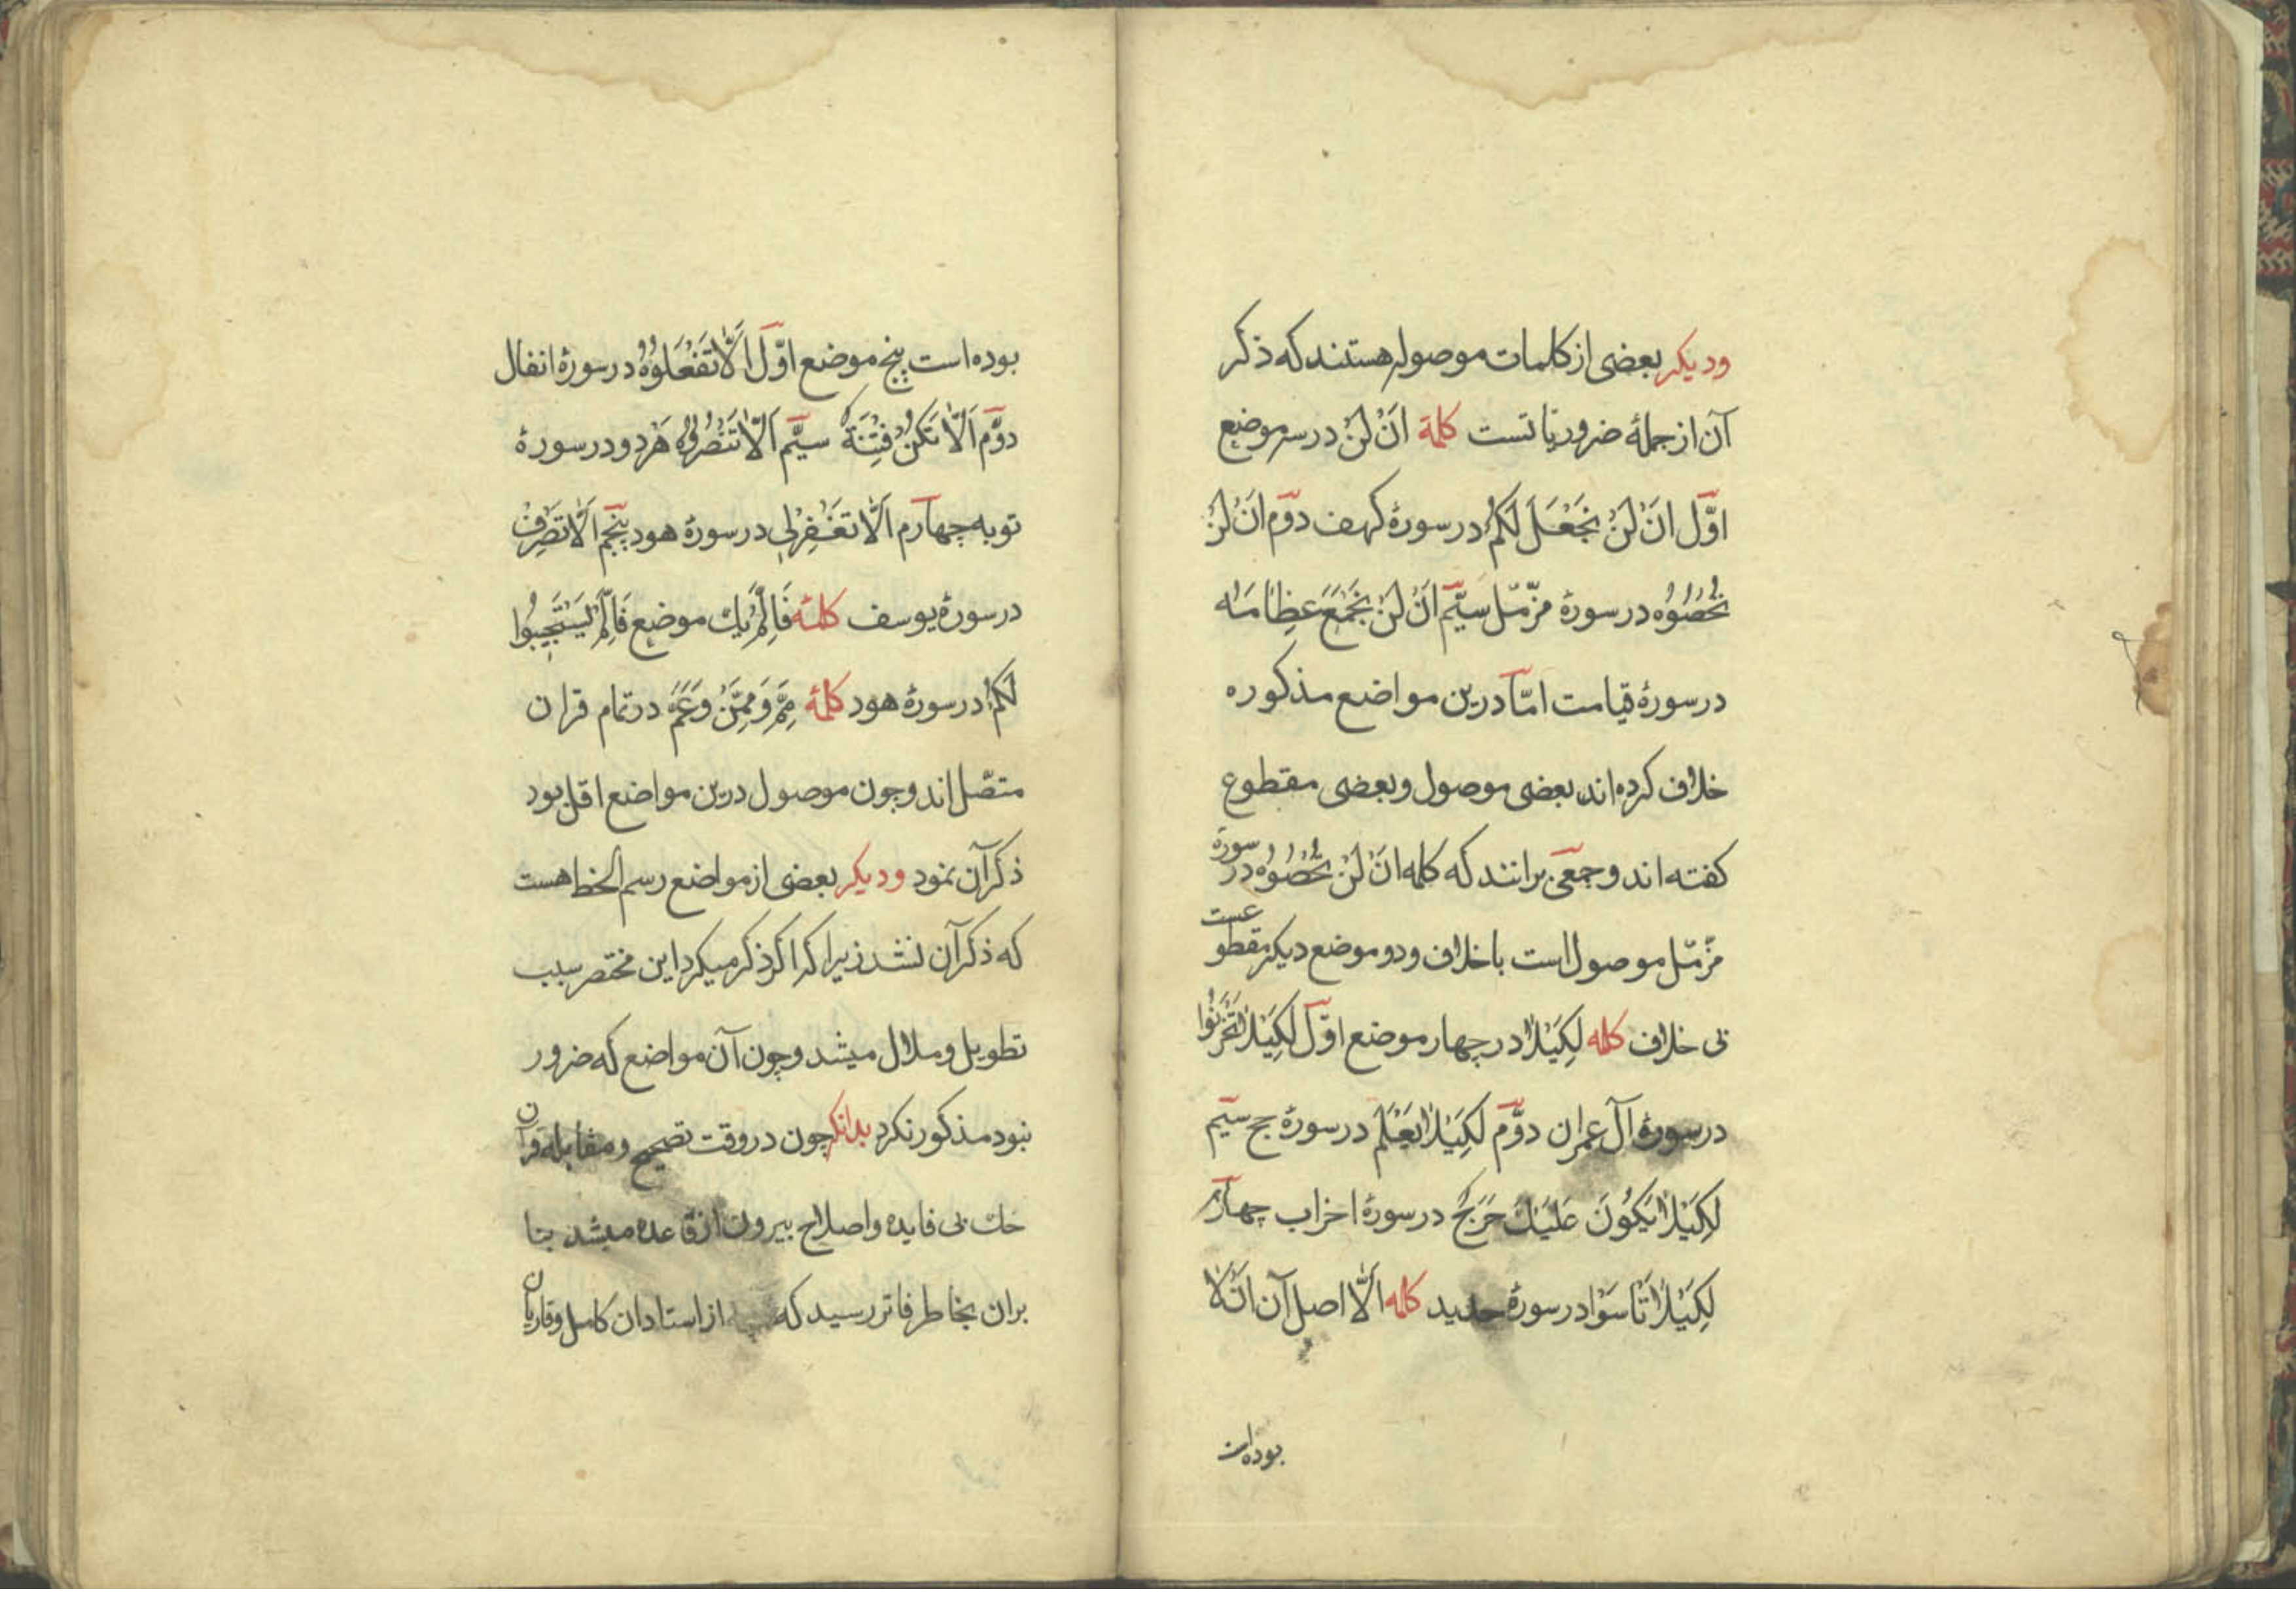 ودیکر بعضی از کلمات موصوله هستند که ذکر
آن از جملۀ ضروریاتست کلمۀ اَنْ لَنْ در سه موضع
اوّل اَنْ لَنْ نَجْعَلَ لَكُمْ در سورۀ کهف دوّم اَنْ لَنْ
تُحْصُوْهُ در سورۀ مزّمّل سیّم اَنْ لَنْ نَجْمَعَ عِظَامَهُ
در سورۀ قیامت امّا درین مواضع مذکوره
خلاف کرده اند بعضی موصول و بعضی مقطوع
کفته اند و جمعی برانند که کلمه اَنْ لَنْ تُحْصُوْهُ در سورۀ
مزّمّل موصول است با خلاف و دو موضع دیکر مقطوعست
بی خلاف کلمه لِكَيْلَا در چهار موضع اوّل لِكَيْلَا تَحْزَنُوا
در سورۀ آل عمران دوّم لِكَيْلَا يَعْلَمَ در سورۀ حج سیّم
لِكَيْلَا يَكُونَ عَلَيْكَ حَرَجٌ در سورۀ احزاب چهارم
لِكَيْلَا تَاْسَوْا در سورۀ حدید کلمه اَلَّا اصل آن اَنْ لَا
بوده است
بوده است پنج موضع اوّل اَلَّا تَفْعَلُوْهُ در سورۀ انفال
دوّم اَلَّا تَكُنْ فِتْنَةٌ سیّم اَلَّا تَنْصُرُوْهُ هر دو در سورۀ
توبه چهارم اَلَّا تَغْفِرْلِی در سورۀ هود پنجم اَلَّا تَصْرِفْ
در سورۀ یوسف کلمۀ فَاِلَّمْ یک موضع فَاِلَّمْ يَسْتَجِيْبُوا
لَكُمْ در سورۀ هود کلمۀ مِمَّ وَمِمَّنْ وَعَمَّ در تمام قران
متصّل اند و چون موصول درین مواضع اقل بود
ذکر آن نمود ودیکر بعضی از مواضع رسم الخط هست
که ذکر آن نشد زیرا که اکر ذکر میکرد این مختصر سبب
تطویل و ملال میشد و چون آن مواضع که ضرور
نبود مذکور نکرد بدانکه چون در وقت تصحیح و مقابله قرآن
حک بی فایده و اصلاح بیرون از قاعده میشد بنا
بران بخاطر فاتر رسید که از استادان کامل و قاریان